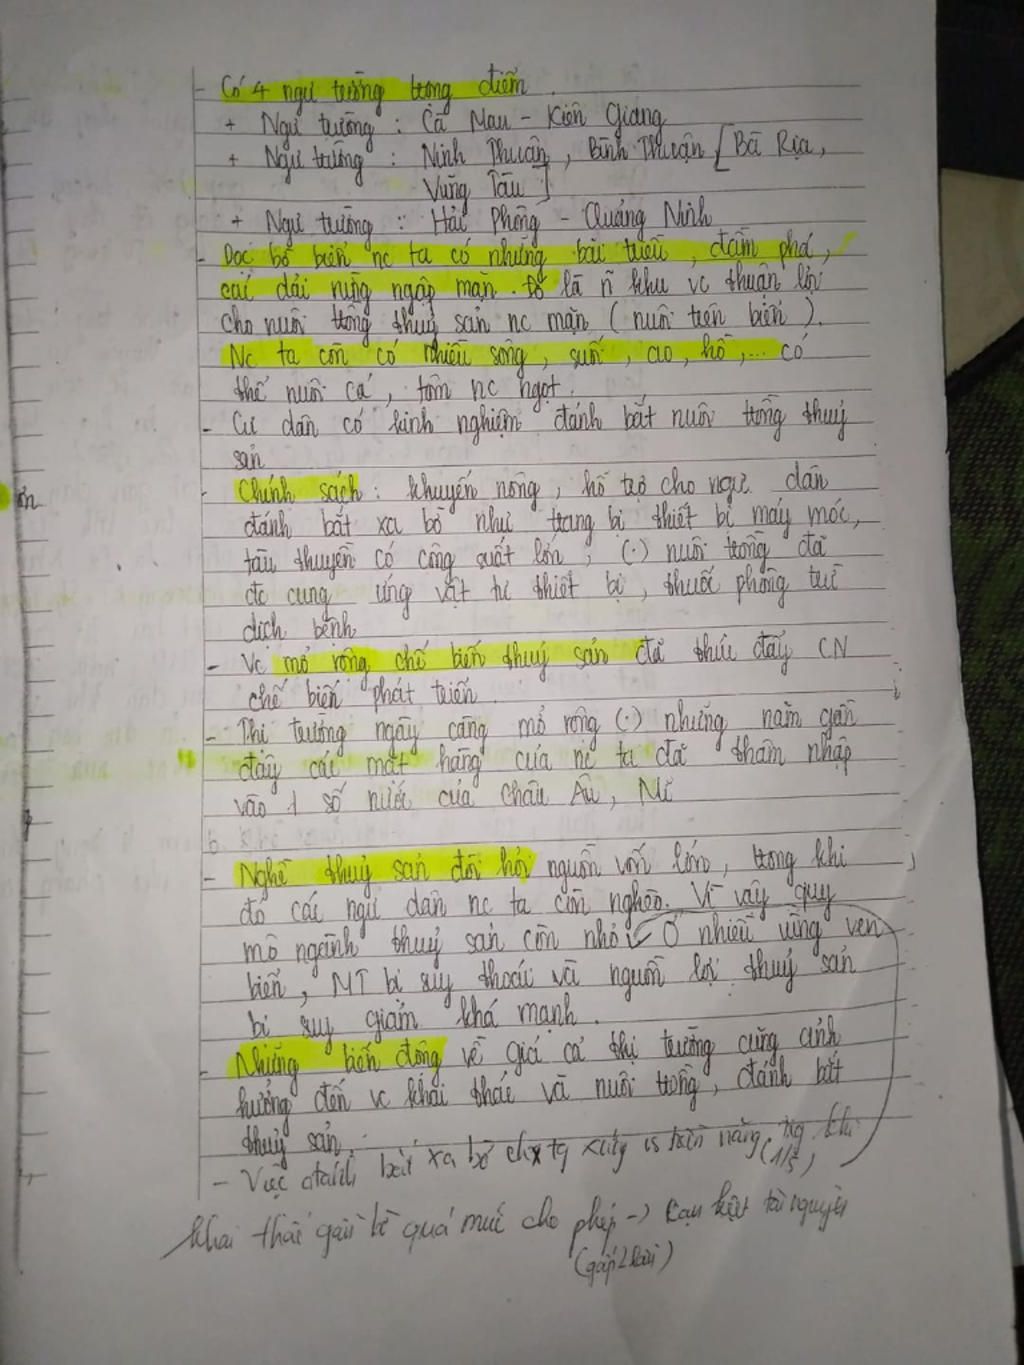 - Có 4 ngư trường trọng điểm.
+ Ngư trường : Cà Mau - Kiên Giang
+ Ngư trường : Ninh Thuận, Bình Thuận [Bà Rịa,
Vũng Tàu]
+ Ngư trường : Hải Phòng - Quảng Ninh
- Dọc bờ biển nc ta có những bãi triều, đầm phá,
các dải rừng ngập mặn. Đó là n~ khu vc thuận lợi
cho nuôi trồng thuỷ sản nc mặn (nuôi trên biển).
Nc ta còn có nhiều sông, suối, ao, hồ,... có
thể nuôi cá, tôm nc ngọt.
- Cư dân có kinh nghiệm đánh bắt nuôi trồng thuỷ
sản
ển
- Chính sách : khuyến nông, hỗ trợ cho ngư dân
đánh bắt xa bờ như trang bị thiết bị máy móc,
tàu thuyền có công suất lớn, (.) nuôi trồng đã
đc cung ứng vật tư thiết bị, thuốc phòng trừ
dịch bệnh
- Vc mở rộng chế biến thuỷ sản đã thúc đẩy CN
chế biến phát triển.
- Thị trường ngày càng mở rộng (.) những năm gần
đây các mặt hàng của nc ta đã thâm nhập
vào 1 số nước của châu Âu, Mĩ
- Nghề thuỷ sản đòi hỏi nguồn vốn lớn, trong khi
đó các ngư dân nc ta còn nghèo. Vì vậy quy
mô ngành thuỷ sản còn nhỏ. Ở nhiều vùng ven
biển, MT bị suy thoái và nguồn lợi thuỷ sản
bị suy giảm khá mạnh.
- Những biến động về giá cả thị trường cũng ảnh
hưởng đến vc khai thác và nuôi trồng, đánh bắt
thuỷ sản.
- Việc đánh bắt xa bờ chx tg xứng vs tiềm năng, trg khi
(1/5)
khai thác gần bờ quá mức cho phép -> cạn kiệt tài nguyên
(gấp 2 lần)